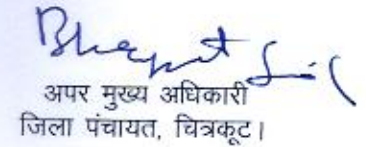 अपर मुख्य अधिकारी
जिला पंचायत, चित्रकूट।